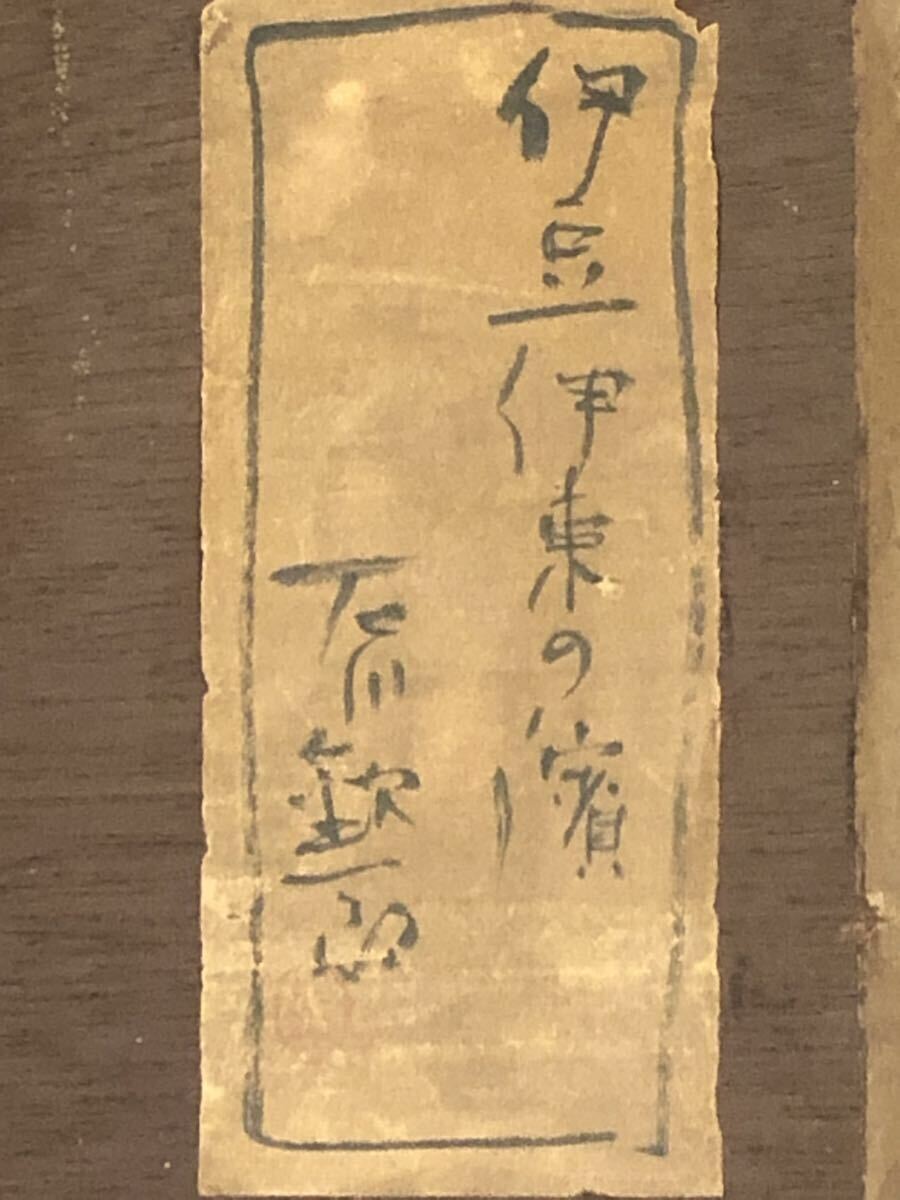 伊豆伊東の濱
石川欽一郎